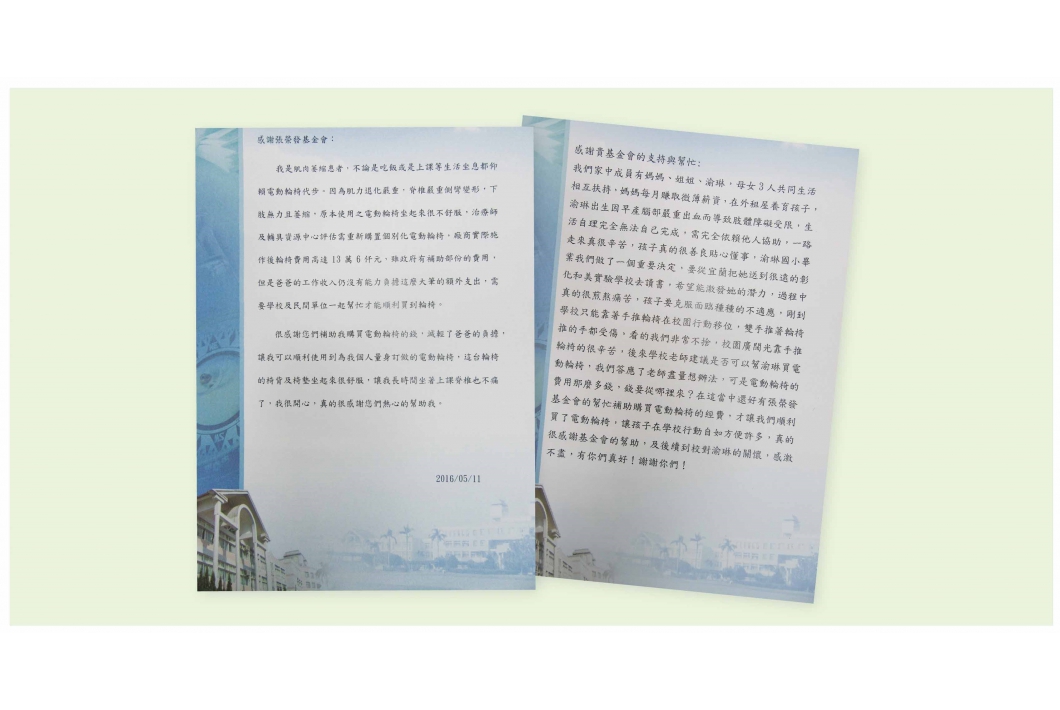 感謝張榮發基金會：
我是肌肉萎縮患者，不論是吃飯或是上課等生活坐息都仰
賴電動輪椅代步。因為肌力退化嚴重，脊椎嚴重側彎變形，下
肢無力且萎縮，原本使用之電動輪椅坐起來很不舒服，治療師
及輔具資源中心評估需重新購置個別化電動輪椅。廠商實際施
作後輪椅費用高達 13 萬 6 仟元。雖政府有補助部份的費用，
但是爸爸的工作收入仍沒有能力負擔這麼大筆的額外支出，需
要學校及民間單位一起幫忙才能順利買到輪椅。
很感謝您們補助我購買電動輪椅的錢，減輕了爸爸的負擔，
讓我可以順利使用到為我個人量身訂做的電動輪椅，這台輪椅
的椅背及椅墊坐起來很舒服，讓我長時間坐著上課脊椎也不痛
了。我很開心，真的很感謝您們熱心的幫助我。
2016/05/11
感謝貴基金會的支持與幫忙：
我們家中成員有媽媽、姐姐、渝琳，母女 3 人共同生活
相互扶持，媽媽每月賺取微薄薪資，在外租屋養育孩子，
渝琳出生因早產腦部嚴重出血而導致肢體障礙受限，生
活自理完全無法自己完成，需完全依賴他人協助，一路
走來真很辛苦，孩子真的很善良貼心懂事，渝琳國小畢
業我們做了一個重要決定。要從宜蘭把她送到很遠的彰
化和美實驗學校去讀書，希望能激發她的潛力，過程中
真的很煎熬痛苦，孩子要克服面臨種種的不適應，剛到
學校只能靠著手推輪椅在校園行動移位，雙手推著輪椅
推的手都受傷。看的我們非常不捨，校園廣闊光靠手推
輪椅的很辛苦，後來學校老師建議是否可以幫渝琳買電
動輪椅，我們答應了老師盡量想辦法，可是電動輪椅的
費用那麼多錢，錢要從哪裡來？在這當中還好有張榮發
基金會的幫忙補助購買電動輪椅的經費，才讓我們順利
買了電動輪椅，讓孩子在學校行動自如方便許多，真的
很感謝基金會的幫助，及後續到校對渝琳的關懷，感激
不盡，有你們真好！謝謝你們！